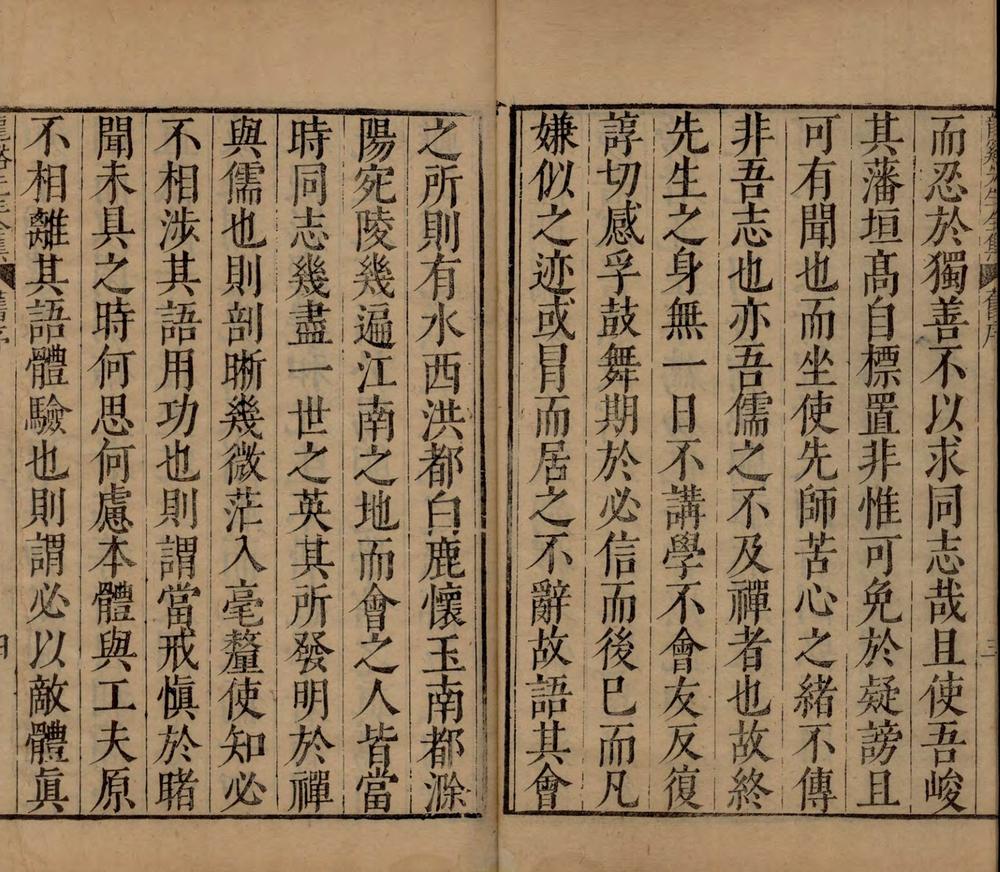 而忍於獨善不以求同志哉且使吾峻
其藩垣髙自標置非惟可免於疑謗且
可有聞也而坐使先師苦心之緒不傳
非吾志也亦吾儒之不及禪者也故終
先生之身無一日不講學不會友反復
諄切感孚鼓舞期於必信而後已而凡
嫌似之迹或冒而居之不辭故語其會
之所則有水西洪都白鹿懷玉南都滁
陽宛陵幾遍江南之地而會之人皆當
時同志幾盡一世之英其所發明於禪
與儒也則剖晰幾微茫入毫釐使知必
不相涉其語用功也則謂當戒慎於睹
聞未具之時何思何慮本體與工夫原
不相離其語體驗也則謂必以敵體眞